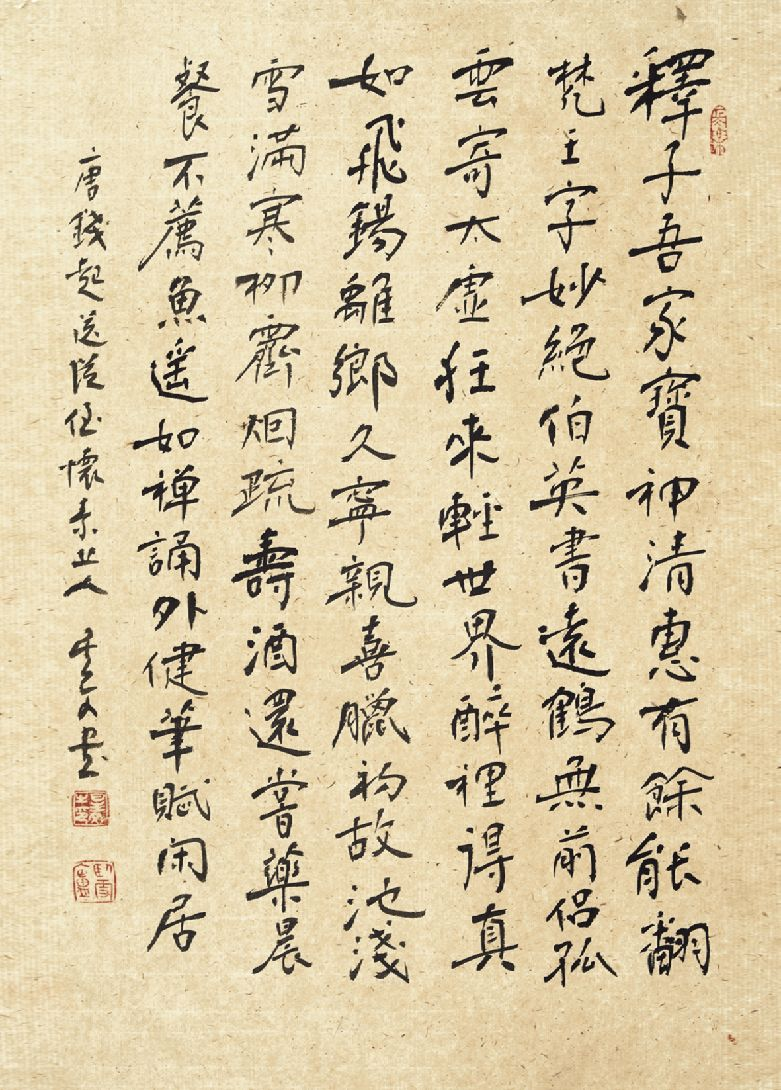 釋子吾家寶神清惠有餘能翻
梵王字妙絕伯英書遠鶴無前侶孤
雲寄太虛狂來輕世界醉裡得真
如飛錫離鄉久寧親喜臘初故池淺
雪滿寒柳霽烟疏壽酒還嘗藥晨
餐不薦魚遥如禅誦外健筆賦閑居
唐錢起送從侄懷素上人 書